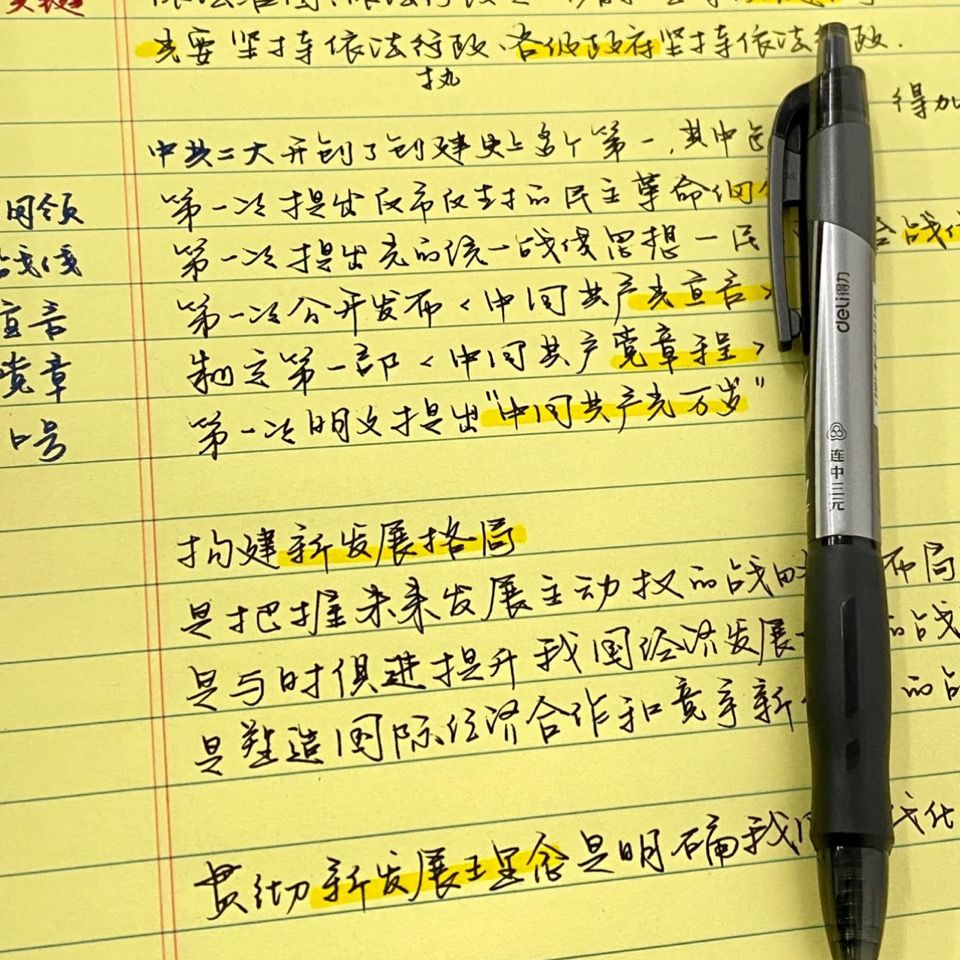 关键
党要坚持依法行政、各级政府坚持依法行政.
执
得加
中共二大开创了创建史上多个第一,其中包
纲领 第一次提出反帝反封的民主革命纲
战线 第一次提出党的统一战线思想一民 合战线
宣言 第一次公开发布《中国共产党宣言》
党章 制定第一部《中国共产党章程》
口号 第一次明文提出"中国共产党万岁"
构建新发展格局
是把握未来发展主动权的战略 布局
是与时俱进提升我国经济发展 的战
是塑造国际经济合作和竞争新 的战
贯彻新发展理念是明确我国 代化
deli得力
连中三元